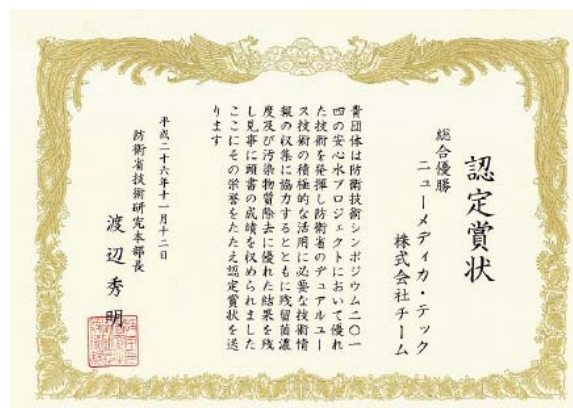 認定賞状
総合優勝
ニューメディカ・テック
株式会社チーム
貴団体は防衛技術シンポジウム二〇一
四の安心水プロジェクトにおいて優れ
た技術を発揮し防衛省のデュアルユー
ス技術の積極的な活用に必要な技術情
報の収集に協力するとともに残留菌濃
度及び汚染物質除去に優れた結果を残
し見事に頭書の成績を収められました
ここにその栄誉をたたえ認定賞状を送
ります
平成二十六年十一月十二日
防衛省技術研究本部長
渡辺秀明